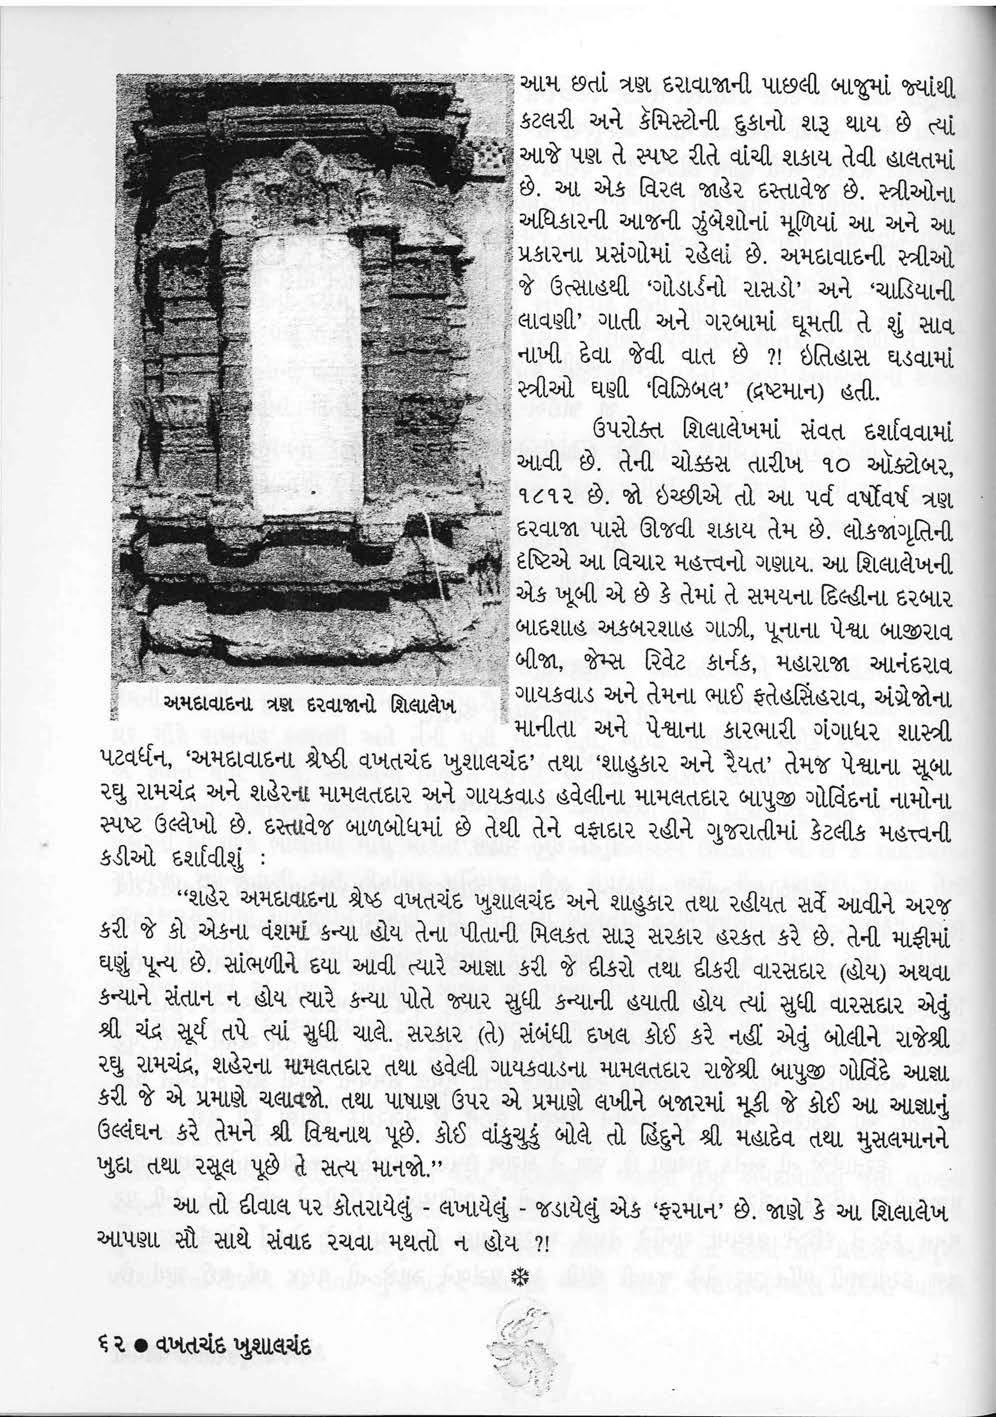 આમ છતાં ત્રણ દરાવાજાની પાછલી બાજુમાં જ્યાંથી
કટલરી અને કૅમિસ્ટોની દુકાનો શરૂ થાય છે ત્યાં
આજે પણ તે સ્પષ્ટ રીતે વાંચી શકાય તેવી હાલતમાં
છે. આ એક વિરલ જાહેર દસ્તાવેજ છે. સ્ત્રીઓના
અધિકારની આજની ઝુંબેશોનાં મૂળિયાં આ અને આ
પ્રકારના પ્રસંગોમાં રહેલાં છે. અમદાવાદની સ્ત્રીઓ
જે ઉત્સાહથી ‘ગોડાર્ડનો રાસડો’ અને ‘ચાડિયાની
લાવણી’ ગાતી અને ગરબામાં ઘૂમતી તે શું સાવ
નાખી દેવા જેવી વાત છે ?! ઇતિહાસ ઘડવામાં
સ્ત્રીઓ ઘણી ‘વિઝિબલ’ (દ્રષ્ટમાન) હતી.
ઉપરોક્ત શિલાલેખમાં સંવત દર્શાવવામાં
આવી છે. તેની ચોક્કસ તારીખ ૧૦ ઑક્ટોબર,
૧૮૧૨ છે. જો ઇચ્છીએ તો આ પર્વ વર્ષોવર્ષ ત્રણ
દરવાજા પાસે ઊજવી શકાય તેમ છે. લોકજાગૃતિની
દૃષ્ટિએ આ વિચાર મહત્ત્વનો ગણાય. આ શિલાલેખની
એક ખૂબી એ છે કે તેમાં તે સમયના દિલ્હીના દરબાર
બાદશાહ અકબરશાહ ગાઝી, પૂનાના પેશ્વા બાજીરાવ
બીજા, જેમ્સ રિવેટ કાર્નક, મહારાજા આનંદરાવ
ગાયકવાડ અને તેમના ભાઈ ફતેહસિંહરાવ, અંગ્રેજોના
માનીતા અને પેશ્વાના કારભારી ગંગાધર શાસ્ત્રી
અમદાવાદના ત્રણ દરવાજાનો શિલાલેખ
પટવર્ધન, ‘અમદાવાદના શ્રેષ્ઠી વખતચંદ ખુશાલચંદ’ તથા ‘શાહુકાર અને રૈયત’ તેમજ પેશ્વાના સૂબા
રઘુ રામચંદ્ર અને શહેરના મામલતદાર અને ગાયકવાડ હવેલીના મામલતદાર બાપુજી ગોવિંદનાં નામોના
સ્પષ્ટ ઉલ્લેખો છે. દસ્તાવેજ બાળબોધમાં છે તેથી તેને વફાદાર રહીને ગુજરાતીમાં કેટલીક મહત્ત્વની
કડીઓ દર્શાવીશું :
“શહેર અમદાવાદના શ્રેષ્ઠ વખતચંદ ખુશાલચંદ અને શાહુકાર તથા રહીયત સર્વે આવીને અરજ
કરી જે કો એકના વંશમાં કન્યા હોય તેના પીતાની મિલકત સારૂ સરકાર હરકત કરે છે. તેની માફીમાં
ઘણું પૂન્ય છે. સાંભળીને દયા આવી ત્યારે આજ્ઞા કરી જે દીકરો તથા દીકરી વારસદાર (હોય) અથવા
કન્યાને સંતાન ન હોય ત્યારે કન્યા પોતે જ્યાર સુધી કન્યાની હયાતી હોય ત્યાં સુધી વારસદાર એવું
શ્રી ચંદ્ર સૂર્ય તપે ત્યાં સુધી ચાલે. સરકાર (તે) સંબંધી દખલ કોઈ કરે નહીં એવું બોલીને રાજેશ્રી
રઘુ રામચંદ્ર, શહેરના મામલતદાર તથા હવેલી ગાયકવાડના મામલતદાર રાજેશ્રી બાપુજી ગોવિંદે આજ્ઞા
કરી જે એ પ્રમાણે ચલાવજો. તથા પાષાણ ઉપર એ પ્રમાણે લખીને બજારમાં મૂકી જે કોઈ આ આજ્ઞાનું
ઉલ્લંઘન કરે તેમને શ્રી વિશ્વનાથ પૂછે. કોઈ વાંકુચુકું બોલે તો હિંદુને શ્રી મહાદેવ તથા મુસલમાનને
ખુદા તથા રસૂલ પૂછે તે સત્ય માનજો.”
આ તો દીવાલ પર કોતરાયેલું - લખાયેલું - જડાયેલું એક ‘ફરમાન’ છે. જાણે કે આ શિલાલેખ
આપણા સૌ સાથે સંવાદ રચવા મથતો ન હોય ?!
❄
૬૨ ● વખતચંદ ખુશાલચંદ